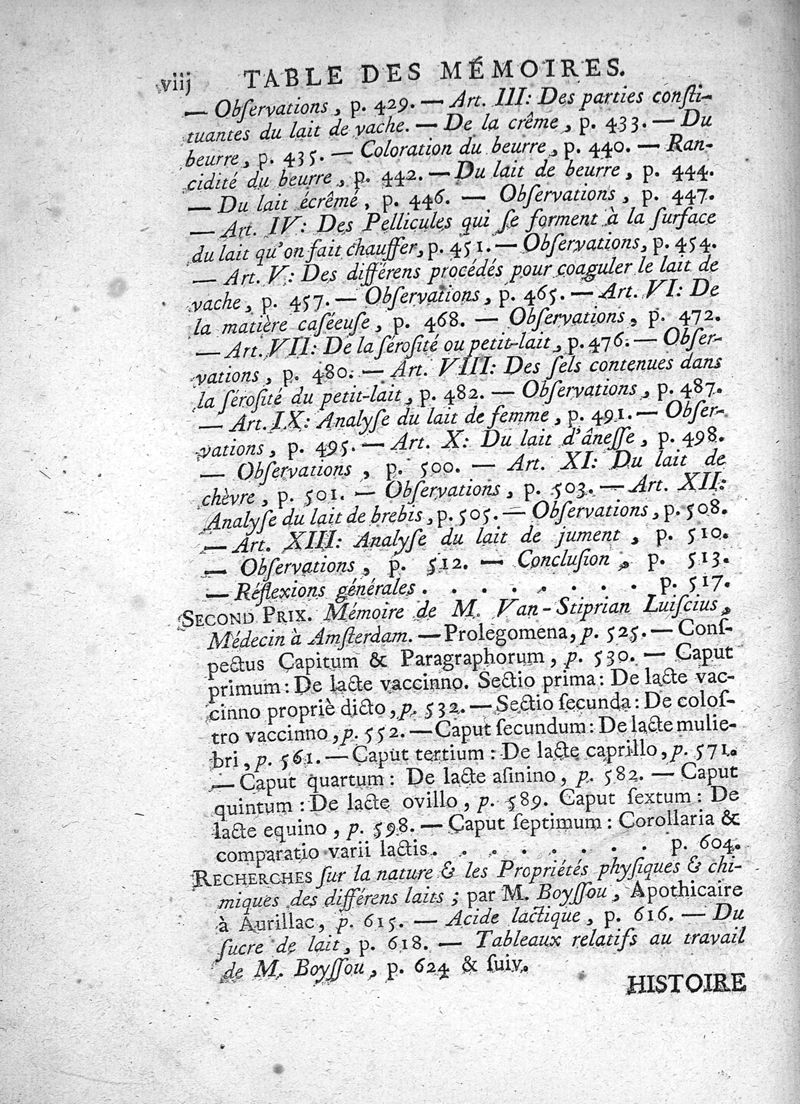 viij TABLE DES MÉMOIRES.
— Obſervations, p. 429. — Art. III: Des parties conſti-
tuantes du lait de vache. — De la crême, p. 433. — Du
beurre, p. 435. — Coloration du beurre, p. 440. — Ran-
cidité du beurre, p. 442. — Du lait de beurre, p. 444.
— Du lait écrêmé, p. 446. — Obſervations, p. 447.
— Art. IV: Des Pellicules qui ſe forment à la ſurface
du lait qu'on fait chauffer, p. 451. — Obſervations, p. 454.
— Art. V: Des différens procédés pour coaguler le lait de
vache, p. 457. — Obſervations, p. 465. — Art. VI: De
la matière caſéeuſe, p. 468. — Obſervations, p. 472.
— Art. VII: De la ſéroſité ou petit-lait, p. 476. — Obſer-
vations, p. 480. — Art. VIII: Des ſels contenues dans
la ſéroſité du petit-lait, p. 482. — Obſervations, p. 487.
— Art. IX: Analyſe du lait de femme, p. 491. — Obſer-
vations, p. 495. — Art. X: Du lait d'âneſſe, p. 498.
— Obſervations, p. 500. — Art. XI: Du lait de
chèvre, p. 501. — Obſervations, p. 503. — Art. XII:
Analyſe du lait de brebis, p. 505. — Obſervations, p. 508.
— Art. XIII: Analyſe du lait de jument, p. 510.
— Obſervations, p. 512. — Concluſion, p. 513.
— Réflexions générales . . . . . . . . p. 517.
SECOND PRIX. Mémoire de M. Van-Stiprian Luiſcius,
Médecin à Amſterdam. — Prolegomena, p. 525. — Conſ-
pectus Capitum & Paragraphorum, p. 530. — Caput
primum: De lacte vaccinno. Sectio prima: De lacte vac-
cinno propriè dicto, p. 532. — Sectio ſecunda: De coloſ-
tro vaccinno, p. 552. — Caput ſecundum: De lacte mulie-
bri, p. 561. — Caput tertium: De lacte caprillo, p. 571.
— Caput quartum: De lacte aſinino, p. 582. — Caput
quintum: De lacte ovillo, p. 589. Caput ſextum: De
lacte equino, p. 598. — Caput ſeptimum: Corollaria &
comparatio varii lactis. . . . . . . . p. 604.
RECHERCHES ſur la nature & les Propriétés phyſiques & chi-
miques des différens laits; par M. Boyſſou, Apothicaire
à Aurillac, p. 615. — Acide lactique, p. 616. — Du
ſucre de lait, p. 618. — Tableaux relatifs au travail
de M. Boyſſou, p. 624 & ſuiv.
HISTOIRE